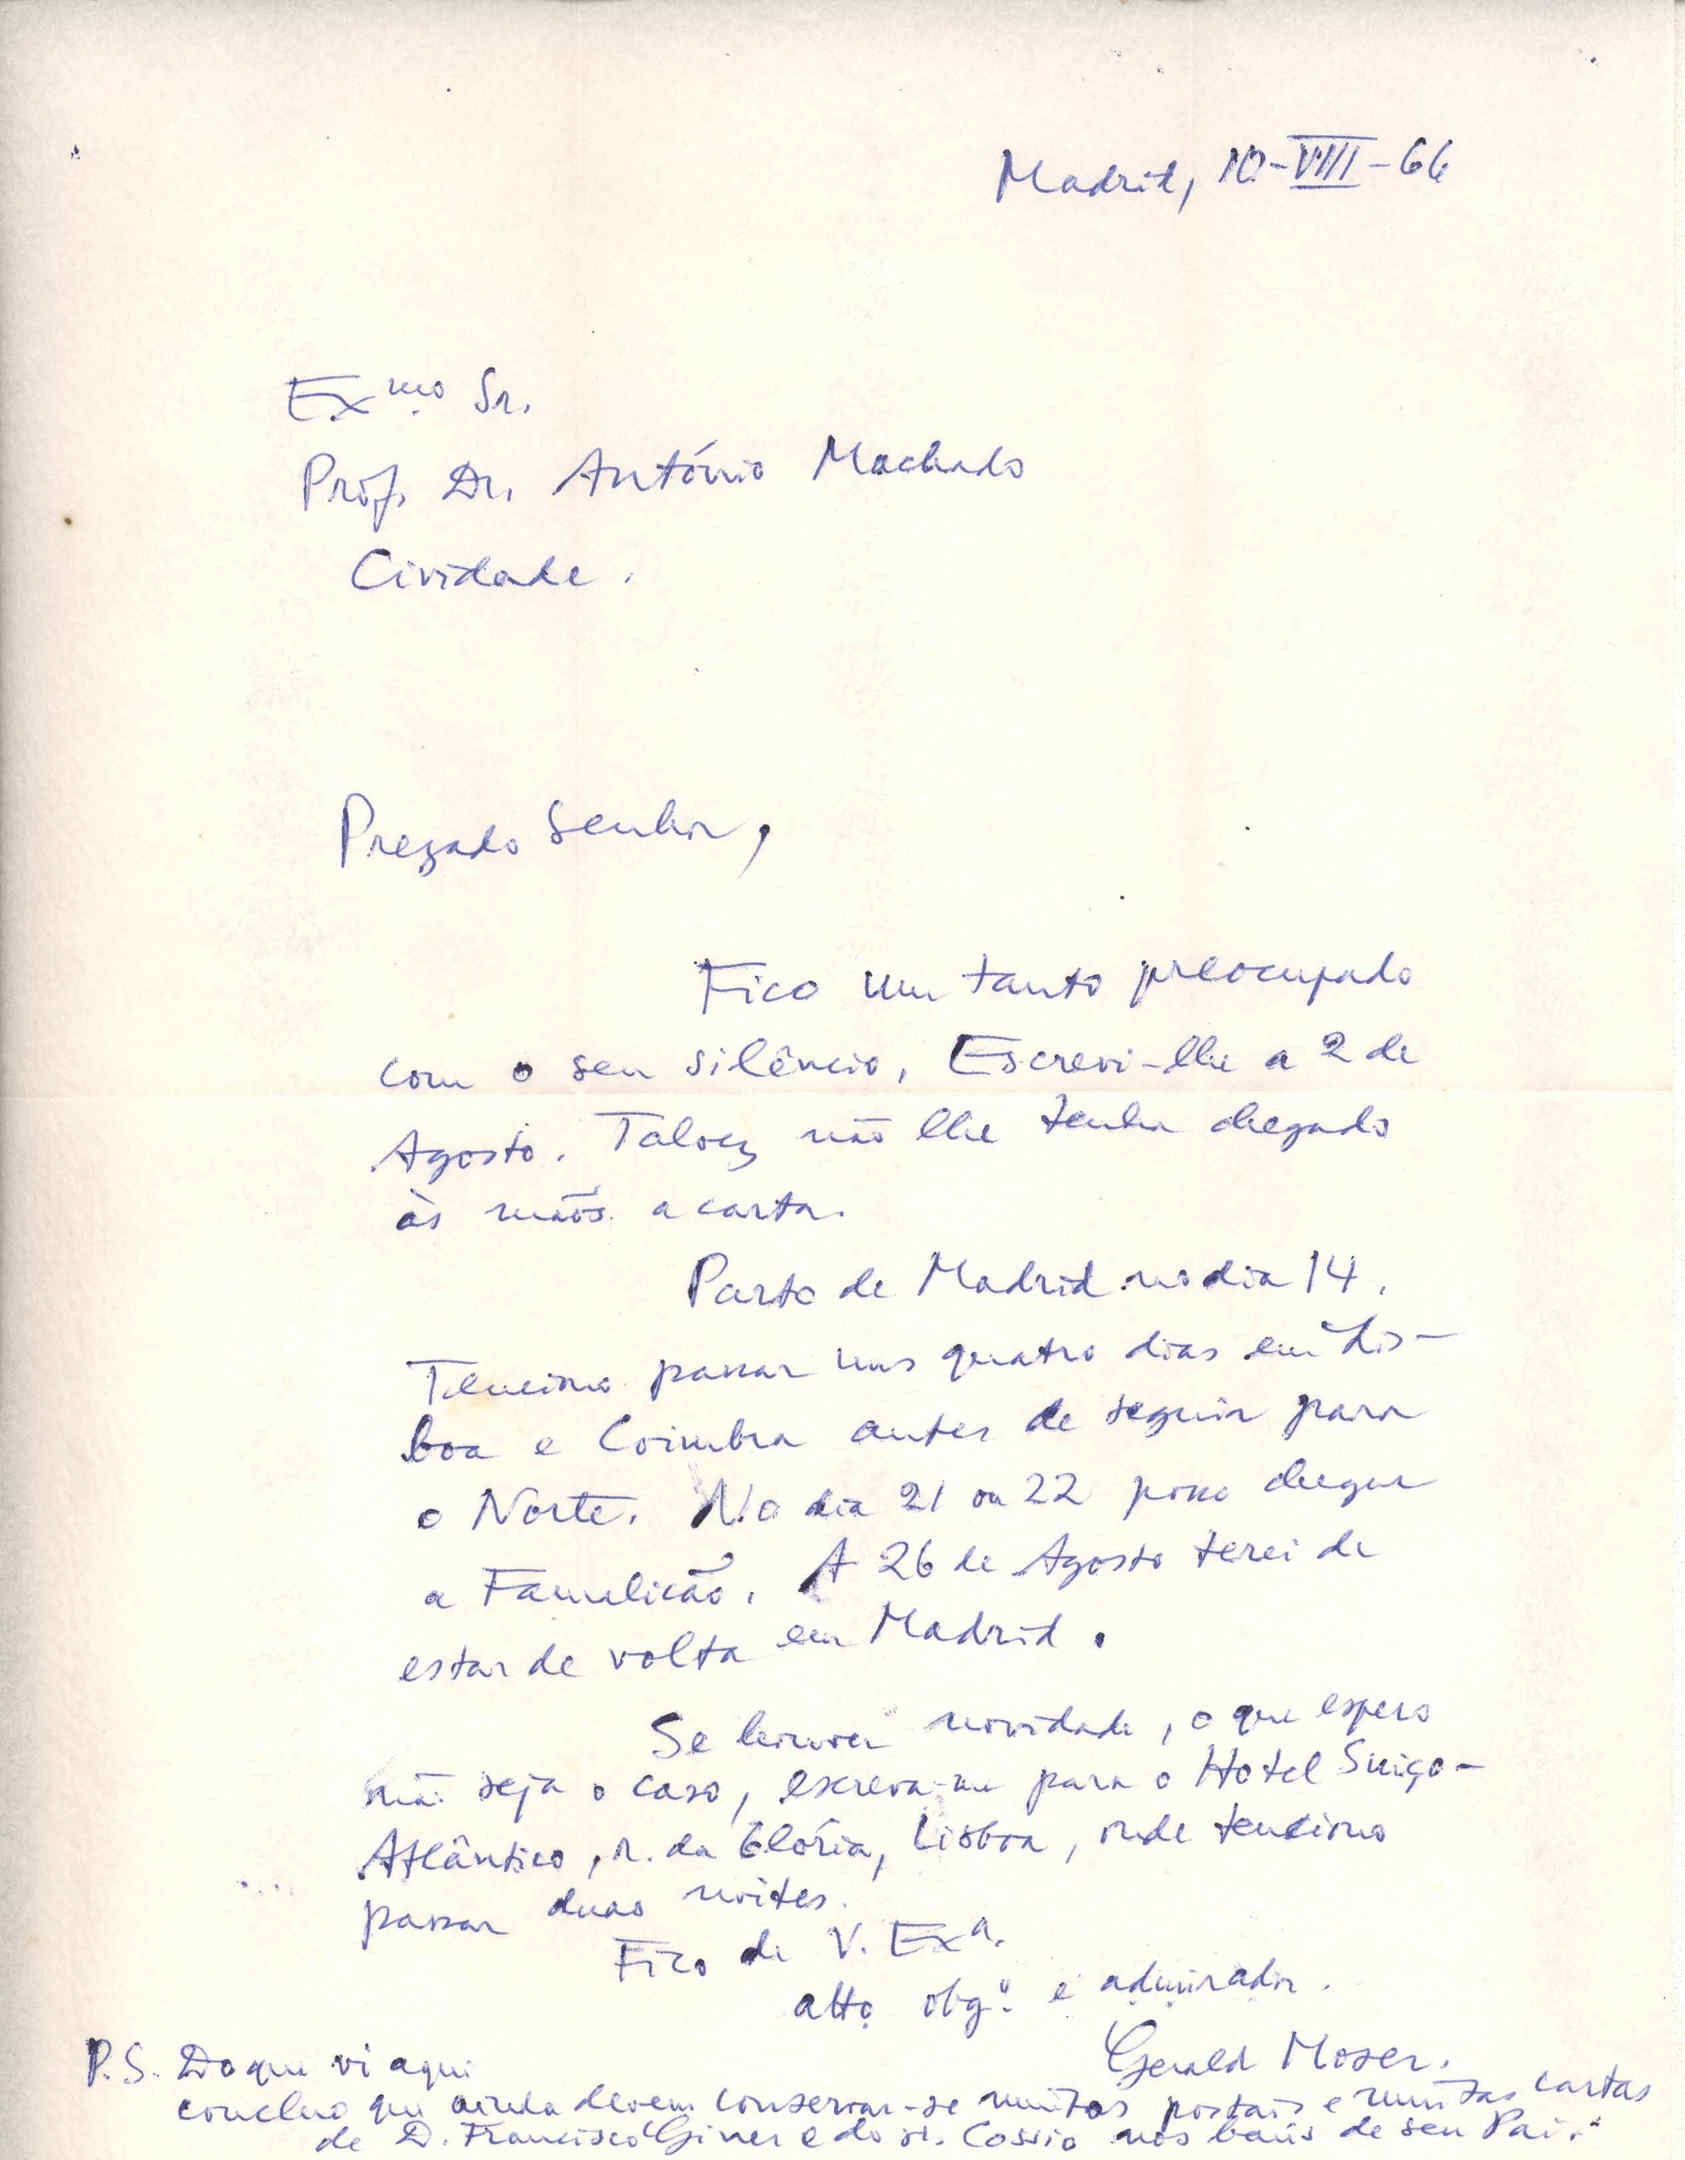 Madrid, 10-VIII-66
Exmo Sr.
Prof. Dr. António Machado
Cividade.
Prezado Senhor,
Fico um tanto preocupado
com o seu silêncio. Escrevi-lhe a 2 de
Agosto. Talvez não lhe tenha chegado
às mãos a carta.
Parto de Madrid no dia 14.
Tenciono passar uns quatro dias em Lis-
boa e Coimbra antes de seguir para
o Norte. No dia 21 ou 22 posso chegar
a Famalicão. A 26 de Agosto terei de
estar de volta em Madrid.
Se houver novidade, o que espero
não seja o caso, escreva-me para o Hotel Suiço-
Atlântico, r. da Glória, Lisboa, onde tenciono
passar duas noites.
Fico de V. Exa.
atto obgo. e admirador.
Gerald Moser.
P.S. Do que vi aqui
concluo que ainda devem conservar-se muitos postais e muitas cartas
de D. Francisco Giner e do sr. Cossio nos baús de seu Pai.